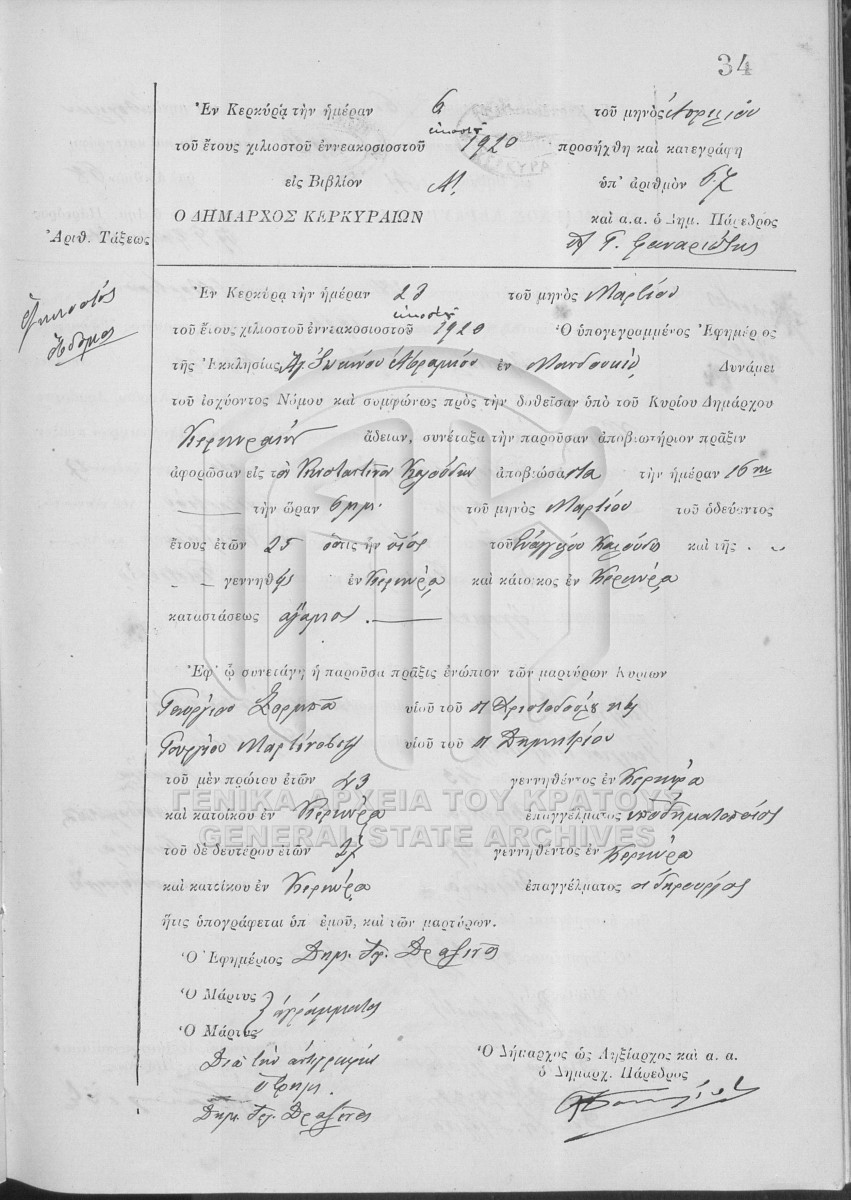 34
Ἐν Κερκύρᾳ τὴν ἡμέραν 6 τοῦ μηνὸς Ἀπριλίου
εἰκοστοῦ
τοῦ ἔτους χιλιοστοῦ ἐννεακοσιοστοῦ 1920 προσήχθη καὶ κατεγράφη
εἰς Βιβλίον Α! ὑπ' ἀριθμὸν 67
Ο ΔΗΜΑΡΧΟΣ ΚΕΡΚΥΡΑΙΩΝ καὶ α.α. ὁ Δημ. Πάρεδρος
Ἀριθ. Τάξεως
Εἰκοστὸς
ἕβδομος
Ἐν Κερκύρᾳ τὴν ἡμέραν 23 τοῦ μηνὸς Μαρτίου
εἰκοστοῦ
τοῦ ἔτους χιλιοστοῦ ἐννεακοσιοστοῦ 1920 Ὁ ὑπογεγραμμένος Ἐφημέριος
τῆς Ἐκκλησίας Ἁγ. Ἰωάννου ἐν Μανδουκίῳ Δυνάμει
τοῦ ἰσχύοντος Νόμου καὶ συμφώνως πρὸς τὴν δοθεῖσαν ὑπὸ τοῦ Κυρίου Δημάρχου
Κερκυραίων ἄδειαν, συνέταξα τὴν παροῦσαν ἀποβιωτήριον πρᾶξιν
ἀφορῶσαν εἰς τὸν Κωνσταντῖνον Καλούδην ἀποβιώσαντα τὴν ἡμέραν 16ην
τὴν ὥραν 6 μμ. τοῦ μηνὸς Μαρτίου τοῦ ὁδεύοντος
ἔτους ἐτῶν 25 ὅστις ἦν υἱὸς τοῦ Εὐαγγέλου Καλούδη καὶ τῆς
γεννηθεὶς ἐν Κερκύρᾳ καὶ κάτοικος ἐν Κερκύρᾳ
καταστάσεως ἄγαμος.
Ἐφ' ᾧ συνετάγη ἡ παροῦσα πρᾶξις ἐνώπιον τῶν μαρτύρων Κυρίων
Γεωργίου υἱοῦ τοῦ π Χριστοδούλου καὶ
Γεωργίου υἱοῦ τοῦ π Δημητρίου
τοῦ μὲν πρώτου ἐτῶν 23 γεννηθέντος ἐν Κερκύρᾳ
ΓΕΝΙΚΑ ΑΡΧΕΙΑ ΤΟΥ ΚΡΑΤΟΥΣ
καὶ κατοίκου ἐν Κερκύρᾳ ἐπαγγέλματος ὑποδηματοποιὸς
GENERAL STATE ARCHIVES
τοῦ δὲ δευτέρου ἐτῶν 27 γεννηθέντος ἐν Κερκύρᾳ
καὶ κατοίκου ἐν Κερκύρᾳ ἐπαγγέλματος σιδηρουργὸς
ἥτις ὑπογράφεται ὑπ' ἐμοῦ, καὶ τῶν μαρτύρων.
Ὁ Ἐφημέριος Δημ. Δραζῖνος
Ὁ Μάρτυς
ἀγράμματος
Ὁ Μάρτυς
Διὰ τὴν ἀντιγραφὴν
ὁ Ἐφημ.
Δημ. Δραζῖνος
Ὁ Δήμαρχος ὡς Ληξίαρχος καὶ α. α.
ὁ Δημαρχ. Πάρεδρος